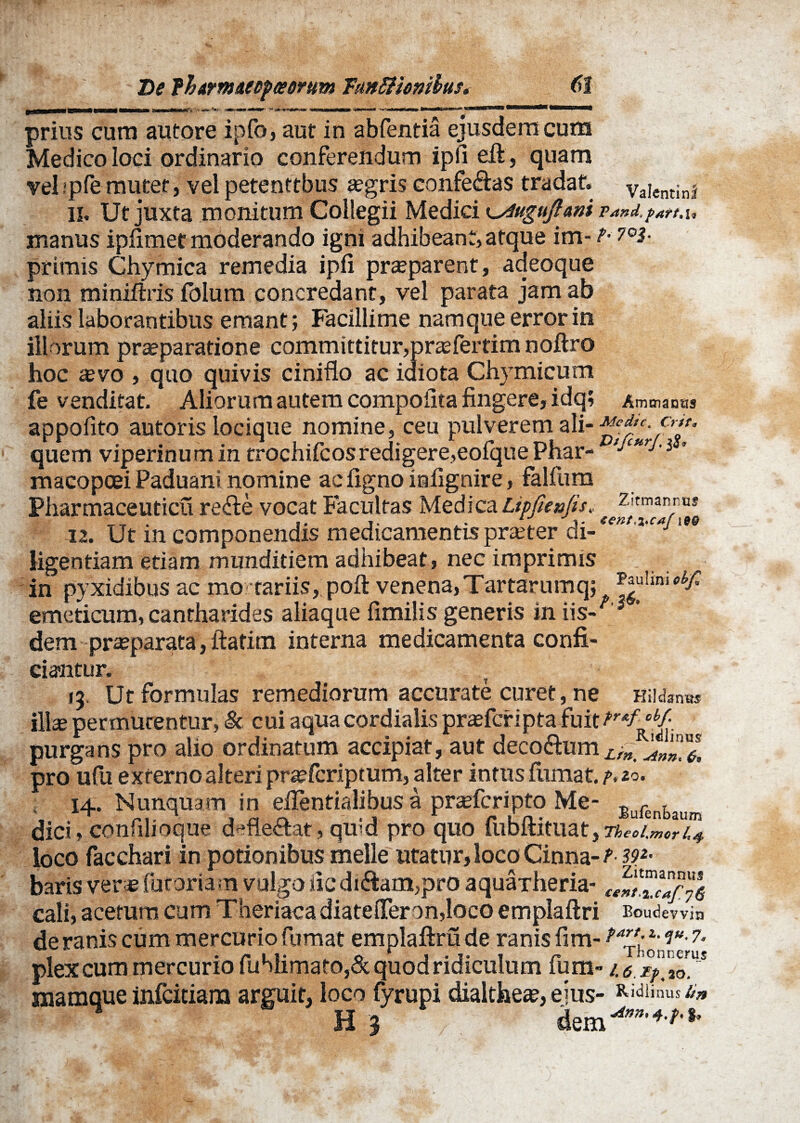 De Pharmaeopæorum Functionibus. 61
prius cum autore ipso, aut in absentiâ ejusdem cum
Medico loci ordinario conferendum ipsi est, quam
vel ipse mutet, vel petenttbus ægris confectas tradat. Valentini
11. Ut juxta monitum Collegii Medici Augustani Pand. part. 1.
manus ipsimet moderando igni adhibeant, atque im- p. 703.
primis Chymica remedia ipsi præparent, adeoque
non ministris solum concredant, vel parata jam ab
aliis laborantibus emant; Facillime namque error in
illorum præparatione committitur, præsertim nostro
hoc ævo, quo quivis ciniflo ac idiota Chymicum
se venditat. Aliorum autem composita fingere, idq; Ammanus
apposito autoris locique nomine, ceu pulverem ali- Medic. Crit.
quem viperinum in trochiscos redigere, eosque Phar- Discurs. 38.
macopœi Paduani nomine ac signo insignire, falsum
Pharmaceuticũ recte vocat Facultas Medica Lipsiensis. Zitmannus
12. Ut in componendis medicamentis præter di- cent. 2. cas 100
ligentiam etiam munditiem adhibeat, nec imprimis
in pyxidibus ac mortariis, post venena, Tartarumq; Paulini obs.
emeticum, cantharides aliaque similis generis in iis- p. 36.
dem præparata, statim interna medicamenta confi-
ciantur.
13. Ut formulas remediorum accurate curet, ne Hildanus
illæ permutentur, & cui aqua cordialis præscripta fuit præf. obs.
purgans pro alio ordinatum accipiat, aut decoctum Ridlinus Lin. Ann. 6.
pro usu externo alteri præscriptum, alter intus sumat. p. 20.
14. Nunquam in essentialibus à præscripto Me-
dici, consilioque deflectat, quid pro quo substituat, Busenbaum Theol. mor l. 4
loco sacchari in potionibus melle utatur, loco Cinna- p. 392.
baris veræ sutoriam vulgo sic dictam, pro aquâ Theria- Zitmannus cent. 2. cas. 76
cali, acetum cum Theriaca diatesseron, loco emplastri Boudewin
de ranis cum mercurio sumat emplastrũ de ranis sim- part. 2. qu. 7.
plex cum mercurio sublimato, & quod ridiculum sum- Thonnerus l. 6. Ep. 20.
mamque inscitiam arguit, loco syrupi dialtheæ, ejus- Ridlinus lin
H 3 dem Ann. 4. p. 8.